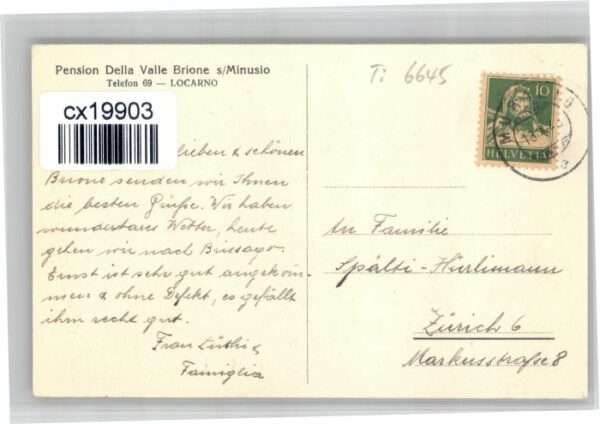 Pension Della Valle Brione s/Minusio
Telefon 69 — LOCARNO
Ti 6645
10
HELVETIA
cx19903
lieben & schönen
Brione senden wir Ihnen
die besten Grüße. Wir haben
wunderbares Wetter, heute
gehen wir nach Brissago.
Ernst ist sehr gut angekom-
men & ohne Defekt, es gefällt
ihm recht gut.
Frau Lüthi &
Famiglia
An Familie
Spälti-Hürlimann
Zürich 6
Markusstraße 8